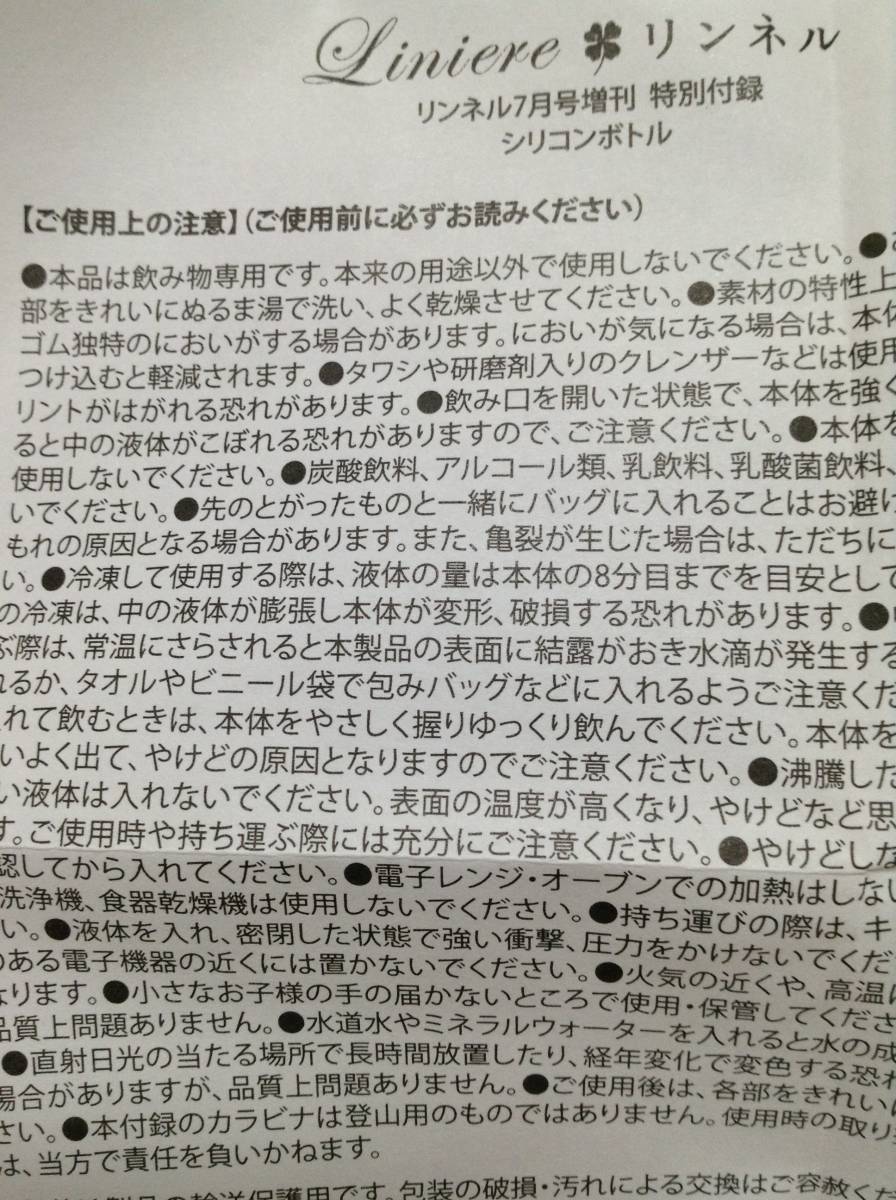 Liniere リンネル
リンネル7月号増刊 特別付録
シリコンボトル
【ご使用上の注意】(ご使用前に必ずお読みください)
●本品は飲み物専用です。本来の用途以外で使用しないでください。●
部をきれいにぬるま湯で洗い、よく乾燥させてください。●素材の特性上
ゴム独特のにおいがする場合があります。においが気になる場合は、本体
つけ込むと軽減されます。●タワシや研磨剤入りのクレンザーなどは使用
リントがはがれる恐れがあります。●飲み口を開いた状態で、本体を強く
ると中の液体がこぼれる恐れがありますので、ご注意ください。●本体を
使用しないでください。●炭酸飲料、アルコール類、乳飲料、乳酸菌飲料、
いでください。●先のとがったものと一緒にバッグに入れることはお避け
もれの原因となる場合があります。また、亀裂が生じた場合は、ただちに
い。●冷凍して使用する際は、液体の量は本体の8分目までを目安として
の冷凍は、中の液体が膨張し本体が変形、破損する恐れがあります。●
ぶ際は、常温にさらされると本製品の表面に結露がおき水滴が発生する
れるか、タオルやビニール袋で包みバッグなどに入れるようご注意くだ
れて飲むときは、本体をやさしく握りゆっくり飲んでください。本体を
いよく出て、やけどの原因となりますのでご注意ください。●沸騰した
い液体は入れないでください。表面の温度が高くなり、やけどなど思
す。ご使用時や持ち運ぶ際には充分にご注意ください。●やけどしな
認してから入れてください。●電子レンジ・オーブンでの加熱はしない
洗浄機、食器乾燥機は使用しないでください。●持ち運びの際は、キ
い。●液体を入れ、密閉した状態で強い衝撃、圧力をかけないでくだ
のある電子機器の近くには置かないでください。●火気の近くや、高温に
なります。●小さなお子様の手の届かないところで使用・保管してくださ
品質上問題ありません。●水道水やミネラルウォーターを入れると水の成
●直射日光の当たる場所で長時間放置したり、経年変化で変色する恐れ
場合がありますが、品質上問題ありません。●ご使用後は、各部をきれいに
さい。●本付録のカラビナは登山用のものではありません。使用時の取り
は、当方で責任を負いかねます。
製品の輸送保護用です。包装の破損・汚れによる交換はご容赦くだ